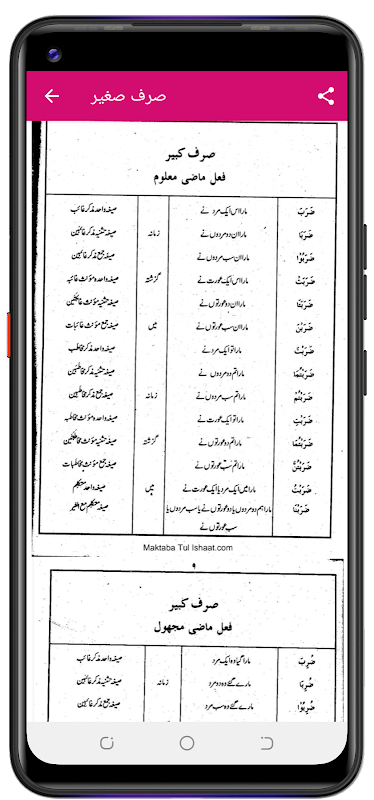 صرف صغیر
صرف کبیر
فعل ماضی معلوم
ضَرَبَ مارا اس ایک مرد نے صیغہ واحد مذکر غائب
ضَرَبَا مارا ان دو مردوں نے زمانہ صیغہ تثنیہ مذکر غائبین
ضَرَبُوْا مارا ان سب مردوں نے صیغہ جمع مذکر غائبین
ضَرَبَتْ مارا اس ایک عورت نے گزشتہ صیغہ واحدہ مؤنث غائبہ
ضَرَبَتَا مارا ان دو عورتوں نے صیغہ تثنیہ مؤنث غائبتین
ضَرَبْنَ مارا ان سب عورتوں نے میں صیغہ جمع مؤنث غائبات
ضَرَبْتَ مارا تو ایک مرد نے صیغہ واحد مذکر مخاطب
ضَرَبْتُمَا مارا تم دو مردوں نے صیغہ تثنیہ مذکر مخاطبین
ضَرَبْتُمْ مارا تم سب مردوں نے زمانہ صیغہ جمع مذکر مخاطبین
ضَرَبْتِ مارا تو ایک عورت نے صیغہ واحدہ مؤنث مخاطبہ
ضَرَبْتُمَا مارا تم دو عورتوں نے گزشتہ صیغہ تثنیہ مؤنث مخاطبتین
ضَرَبْتُنَّ مارا تم سب عورتوں نے صیغہ جمع مؤنث مخاطبات
ضَرَبْتُ مارا میں ایک مرد یا ایک عورت نے میں صیغہ واحد متکلم
ضَرَبْنَا مارا ہم دو مردوں یا دو عورتوں نے یا سب مردوں یا صیغہ متکلم مع الغیر
سب عورتوں نے
Maktaba Tul Ishaat.com
۹
صرف کبیر
فعل ماضی مجهول
ضُرِبَ مارا گیا وہ ایک مرد صیغہ واحد مذکر غائب
ضُرِبَا مارے گئے وہ دو مرد زمانہ صیغہ تثنیہ مذکر غائبین
ضُرِبُوْا مارے گئے وہ سب مرد صیغہ جمع مذکر غائبین